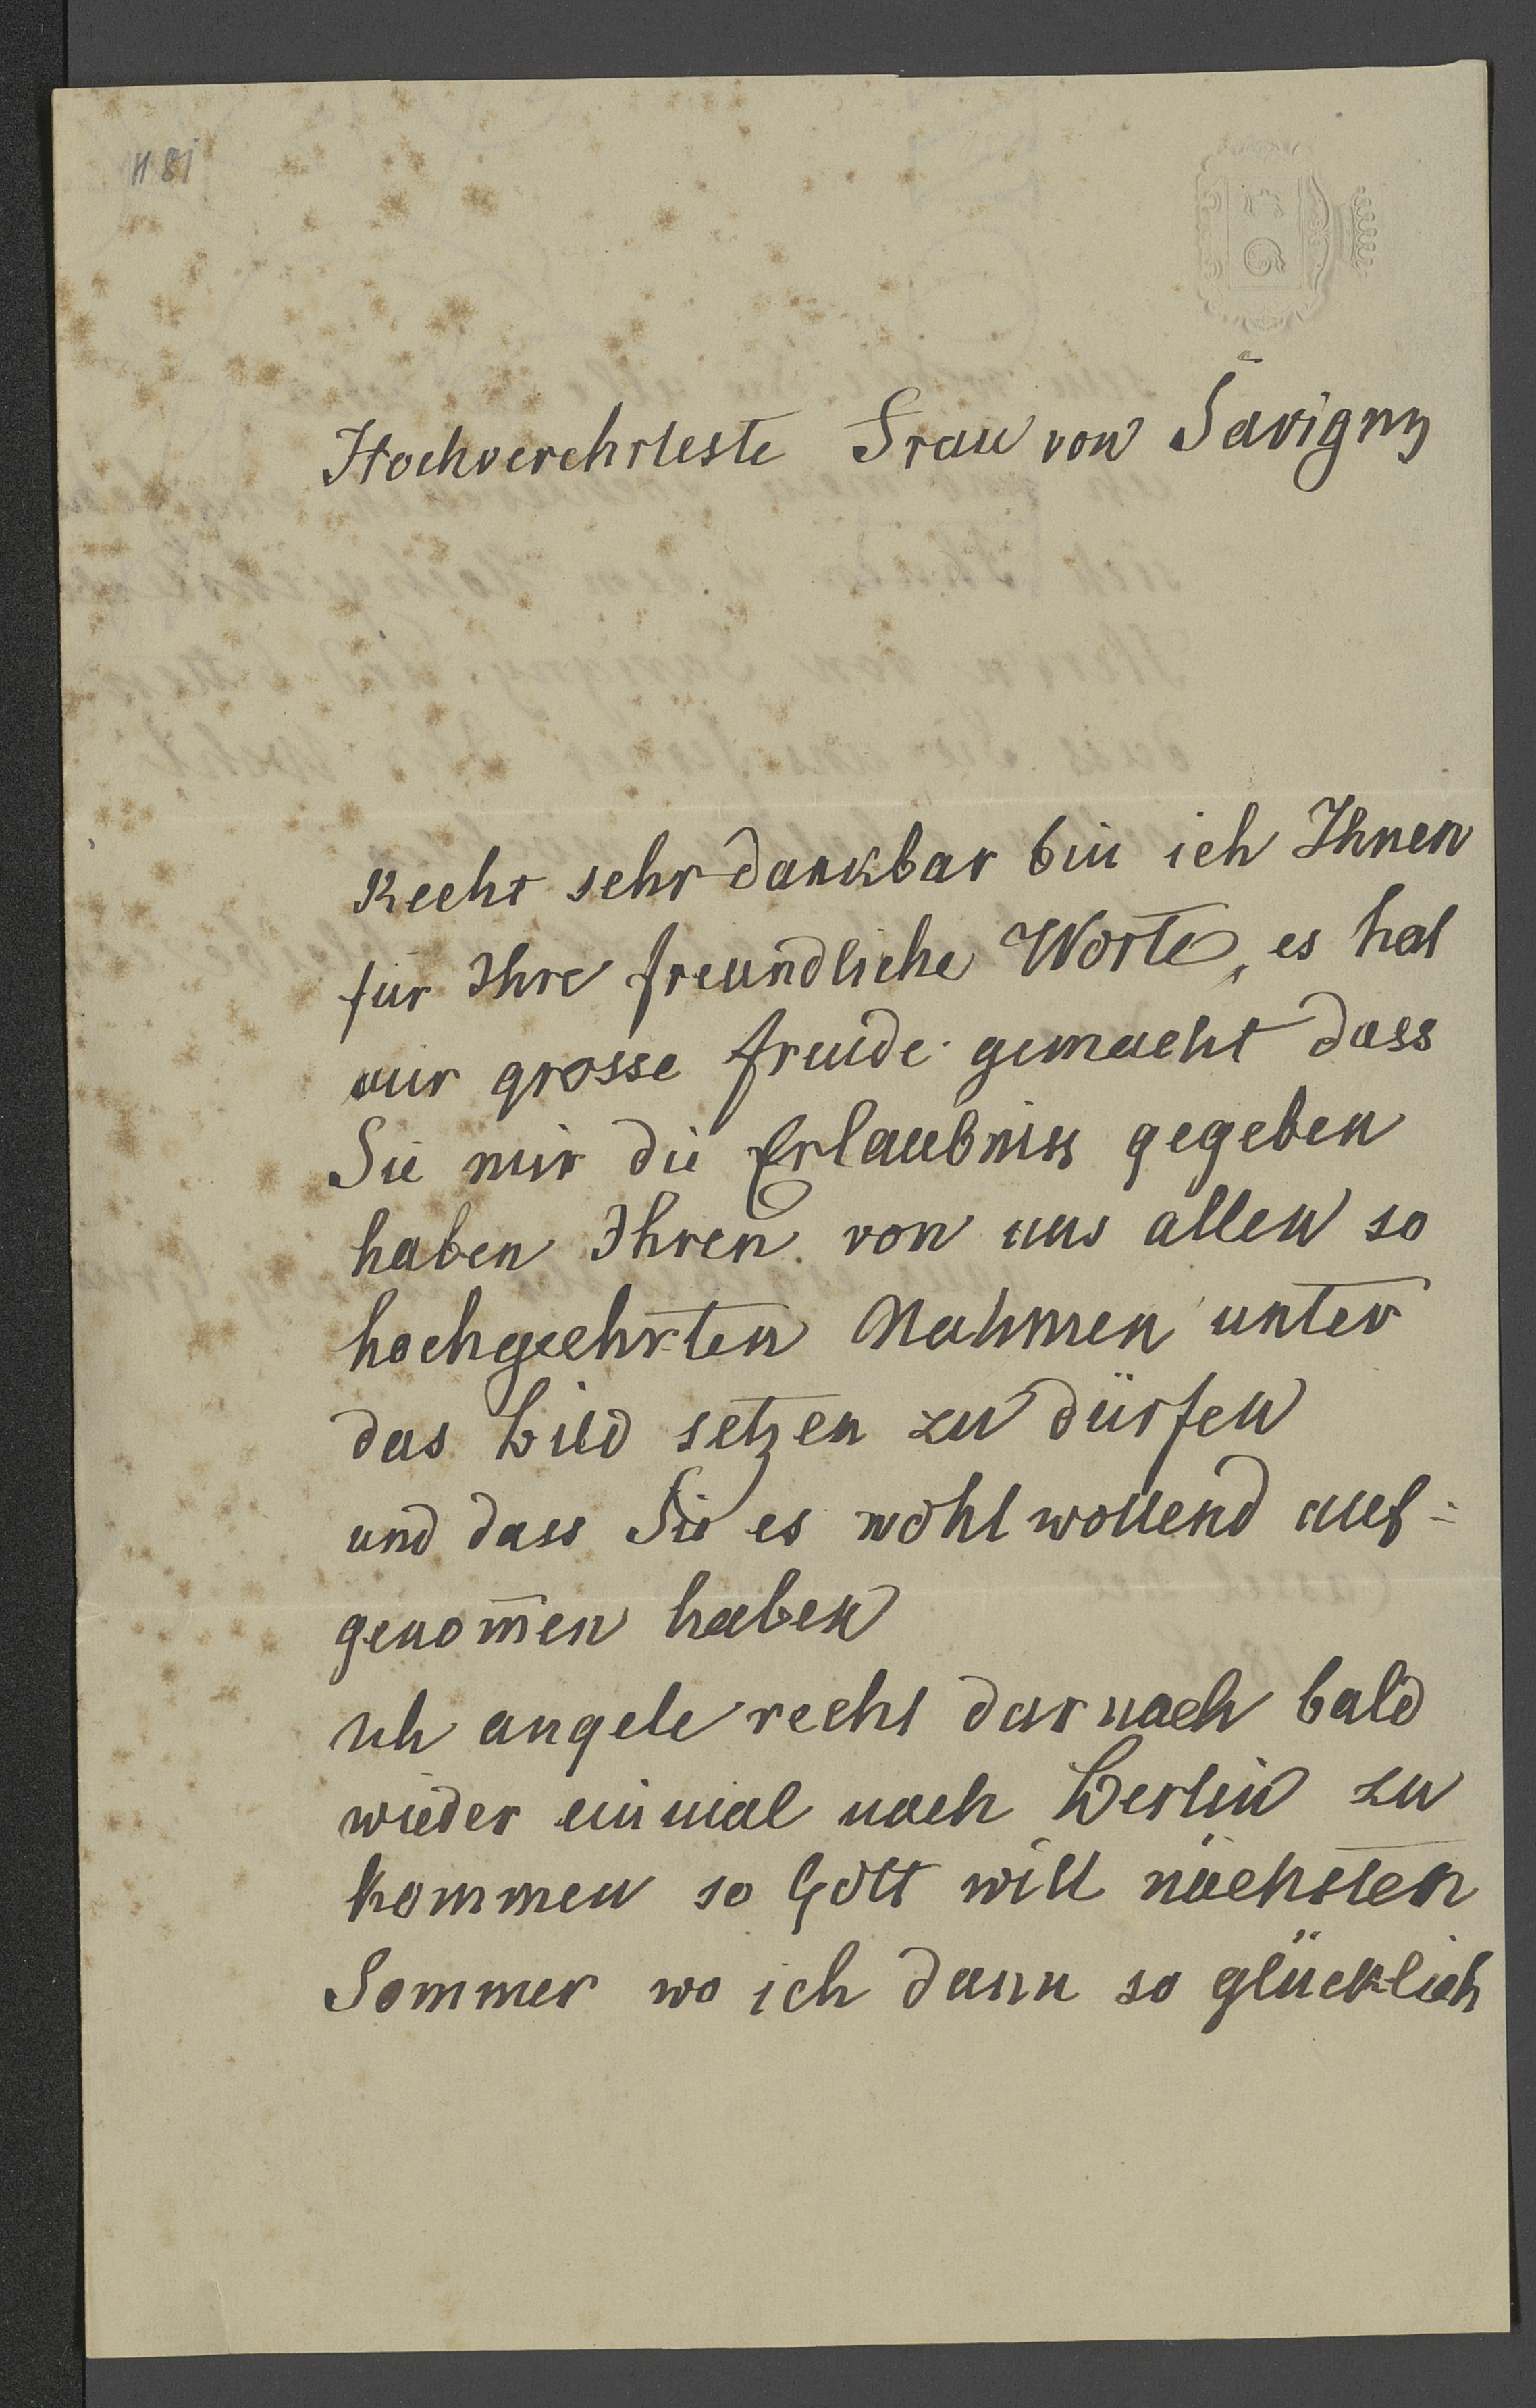 H 81
Hochverehrteste Frau von Savigny
Recht sehr dankbar bin ich Ihnen
für Ihre freundliche Worte, es hat
mir grosse freude gemacht dass
Sie mir die Erlaubniss gegeben
haben Ihren von uns allen so
hochgeehrten Nahmen unter
das Bild setzen zu dürfen
und dass Sie es wohlwollend auf-
genom̄en haben
Ich angele recht darnach bald
wieder einmal nach Berlin zu
kommen so Gott will nächsten
Sommer wo ich dann so glücklich